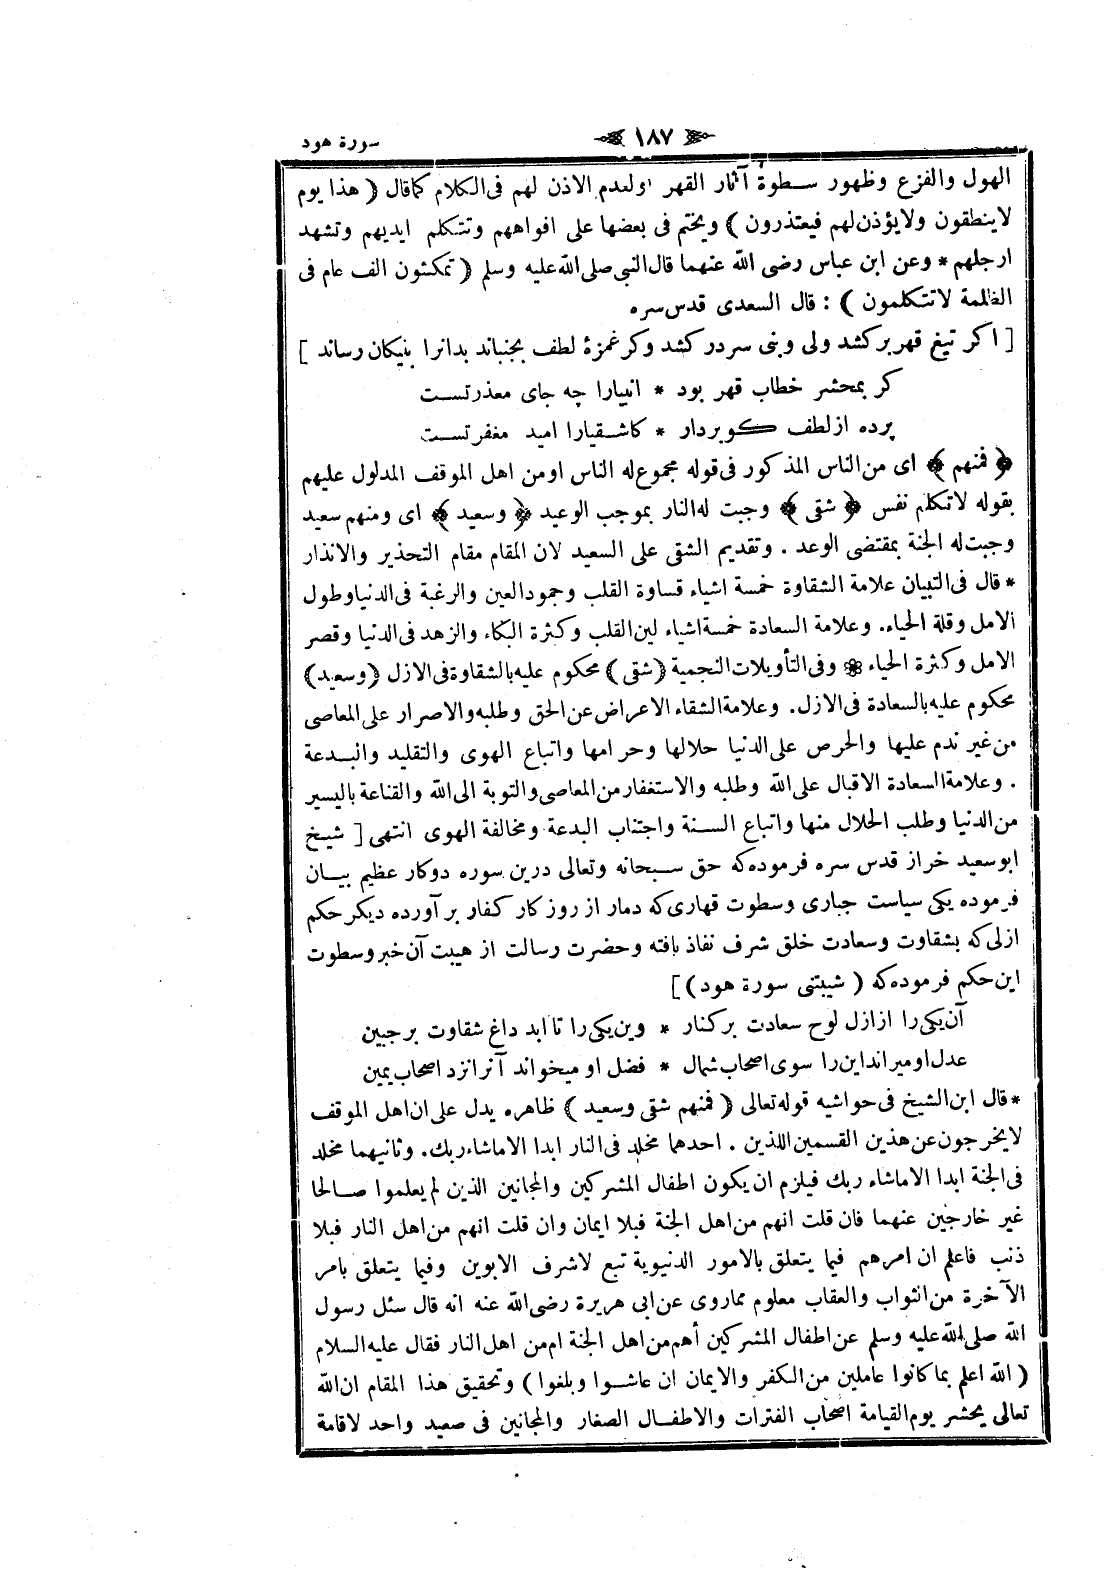 سورة هود
﴿ ١٨٧ ﴾
الهول والفزع وظهور سطوة آثار القهر اولعدم الاذن لهم فى الكلام كماقال ( هذا يوم
لاينطقون ولايؤذن لهم فيعتذرون ) ويختم فى بعضها على افواههم وتتكلم ايديهم وتشهد
ارجلهم * وعن ابن عباس رضى الله عنهما قال النبى صلى الله عليه وسلم ( تمكثون الف عام فى
الظلمة لاتتكلمون ) : قال السعدى قدس سره
[ اكر تيغ قهر بركشد ولى ونبى سردر كشد وكر غمزهٔ لطف بجنباند بدانرا بنيكان رساند ]
كر بمحشر خطاب قهر بود * انبيارا چه جاى معذرتست
پرده ازلطف كوبردار * كاشقيارا اميد مغفرتست
﴿ فمنهم ﴾ اى من الناس المذكور فى قوله مجموع له الناس اومن اهل الموقف المدلول عليهم
بقوله لاتكلم نفس ﴿ شقى ﴾ وجبت له النار بموجب الوعيد ﴿ وسعيد ﴾ اى ومنهم سعيد
وجبت له الجنة بمقتضى الوعد . وتقديم الشقى على السعيد لان المقام مقام التحذير والانذار
* قال فى التبيان علامة الشقاوة خمسة اشياء قساوة القلب وجمود العين والرغبة فى الدنيا وطول
الامل وقلة الحياء. وعلامة السعادة خمسة اشياء لين القلب وكثرة البكاء والزهد فى الدنيا وقصر
الامل وكثرة الحياء ❀ وفى التأويلات النجمية (شقى) محكوم عليه بالشقاوة فى الازل (وسعيد)
محكوم عليه بالسعادة فى الازل. وعلامة الشقاء الاعراض عن الحق وطلبه والاصرار على المعاصى
من غير ندم عليها والحرص على الدنيا حلالها وحرامها واتباع الهوى والتقليد والبدعة
. وعلامة السعادة الاقبال على الله وطلبه والاستغفار من المعاصى والتوبة الى الله والقناعة باليسير
من الدنيا وطلب الحلال منها واتباع السنة واجتناب البدعة ومخالفة الهوى انتهى [ شيخ
ابوسعيد خراز قدس سره فرموده كه حق سبحانه وتعالى درين سوره دوكار عظيم بيان
فرموده يكى سياست جبارى وسطوت قهارى كه دمار از روز كار كفار بر آورده ديكر حكم
ازلى كه بشقاوت وسعادت خلق شرف نفاذ يافته وحضرت رسالت از هيبت آن خبر وسطوت
اين حكم فرموده كه ( شيبتنى سورة هود ) ]
آن يكى را ازازل لوح سعادت بركنار * وين يكى را تا ابد داغ شقاوت برجبين
عدل او ميراند اين را سوى اصحاب شمال * فضل او ميخواند آنرا نزد اصحاب يمين
* قال ابن الشيخ فى حواشيه قوله تعالى ( فمنهم شقى وسعيد ) ظاهره يدل على ان اهل الموقف
لايخرجون عن هذين القسمين اللذين . احدهما مخلد فى النار ابدا الاماشاء ربك. وثانيهما مخلد
فى الجنة ابدا الاماشاء ربك فيلزم ان يكون اطفال المشركين والمجانين الذين لم يعلموا صالحا
غير خارجين عنهما فان قلت انهم من اهل الجنة فبلا ايمان وان قلت انهم من اهل النار فبلا
ذنب فاعلم ان امرهم فيما يتعلق بالامور الدنيوية تبع لاشرف الابوين وفيما يتعلق بامر
الآخرة من الثواب والعقاب معلوم مماروى عن ابى هريرة رضى الله عنه انه قال سئل رسول
الله صلى الله عليه وسلم عن اطفال المشركين أهم من اهل الجنة ام من اهل النار فقال عليه السلام
( الله اعلم بما كانوا عاملين من الكفر والايمان ان عاشوا وبلغوا ) وتحقيق هذا المقام ان الله
تعالى يحشر يوم القيامة اصحاب الفترات والاطفال الصغار والمجانين فى صعيد واحد لاقامة